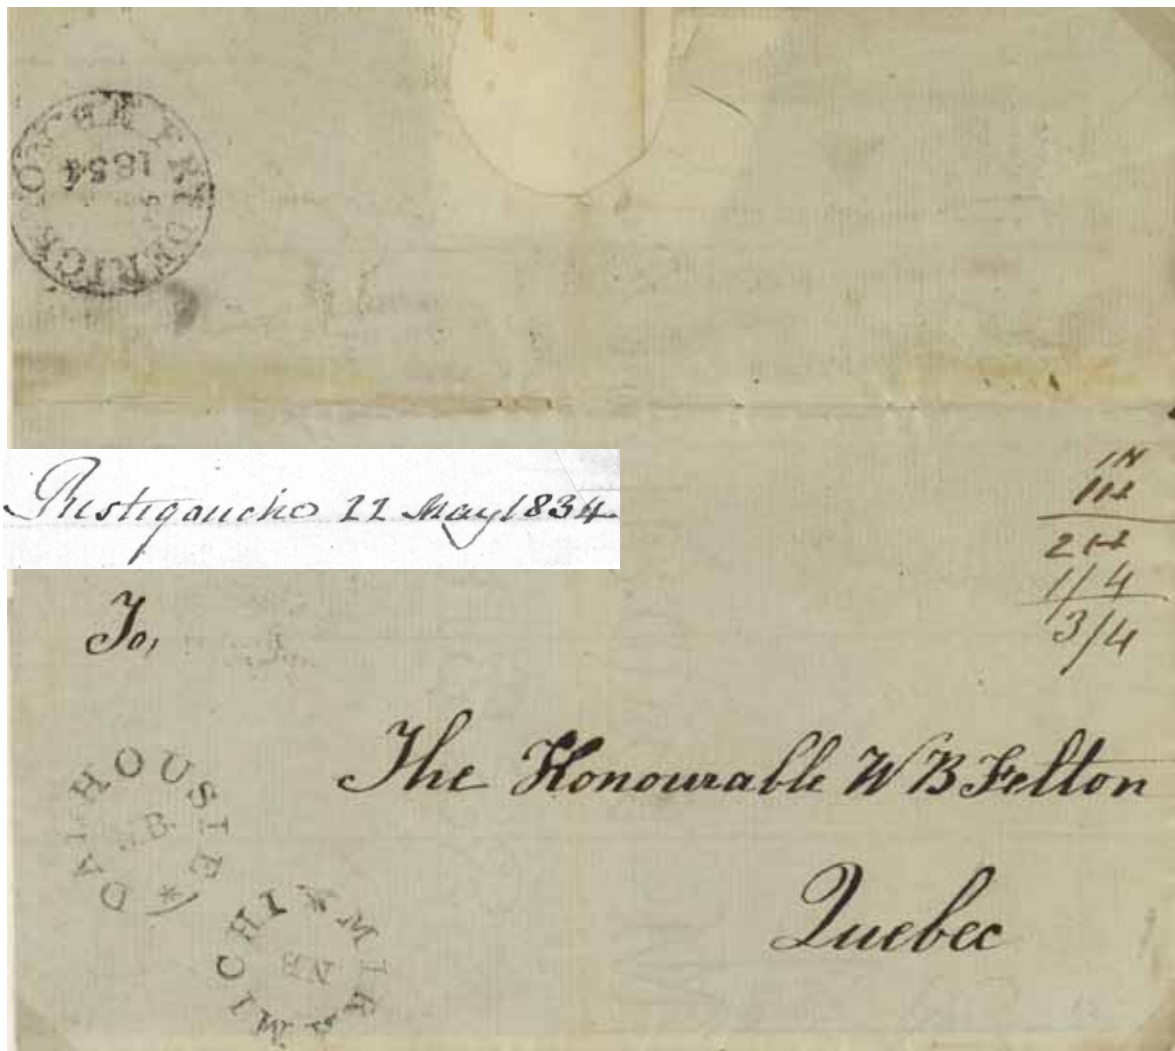 FREDERICKTON
1834
Restigouche 22 May 1834
1N
11½
2 1½
1/4
3/4
To,
The Honourable W B Felton
Quebec
DALHOUSIE
N.B.
MIRAMICHI
NB